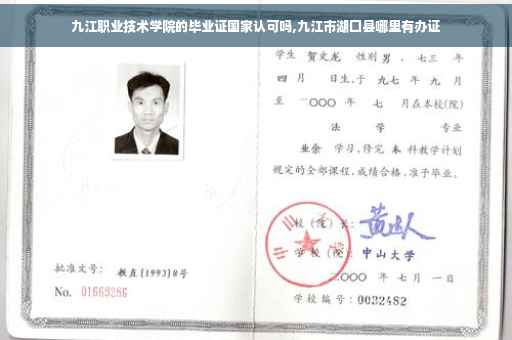 九江职业技术学院的毕业证国家认可吗,九江市湖口县哪里有办证
学生 贺文龙 性别 男 、七三 年
四 月 日生,于 九七 年 九 月
至 二〇〇〇 年 七 月在本校(院)
法 学 专业
业余 学习,修完 本 科教学计划
规定的全部课程,成绩合格,准予毕业。
校(院)长:
学校(院): 中山大学
二〇〇〇 年 七 月 一 日
批准文号: 教直[1993]8号
No. 01669286
学校编号: 0032482